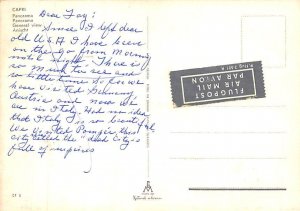 CAPRI
Panorama
Panorama
General view
Ansicht
Dear Fay:
Since I left dear
old U.S.A I have been
on the go from morning
until night. There is
so much to see and
so little time. So far we
have visited Germany
Austria and now we
are in Italy. Had no idea
that Italy is so beautiful
We visited Pompeii this
city called the "dead city is
full of surprises
FLUGPOST
AIR MAIL
PAR AVION